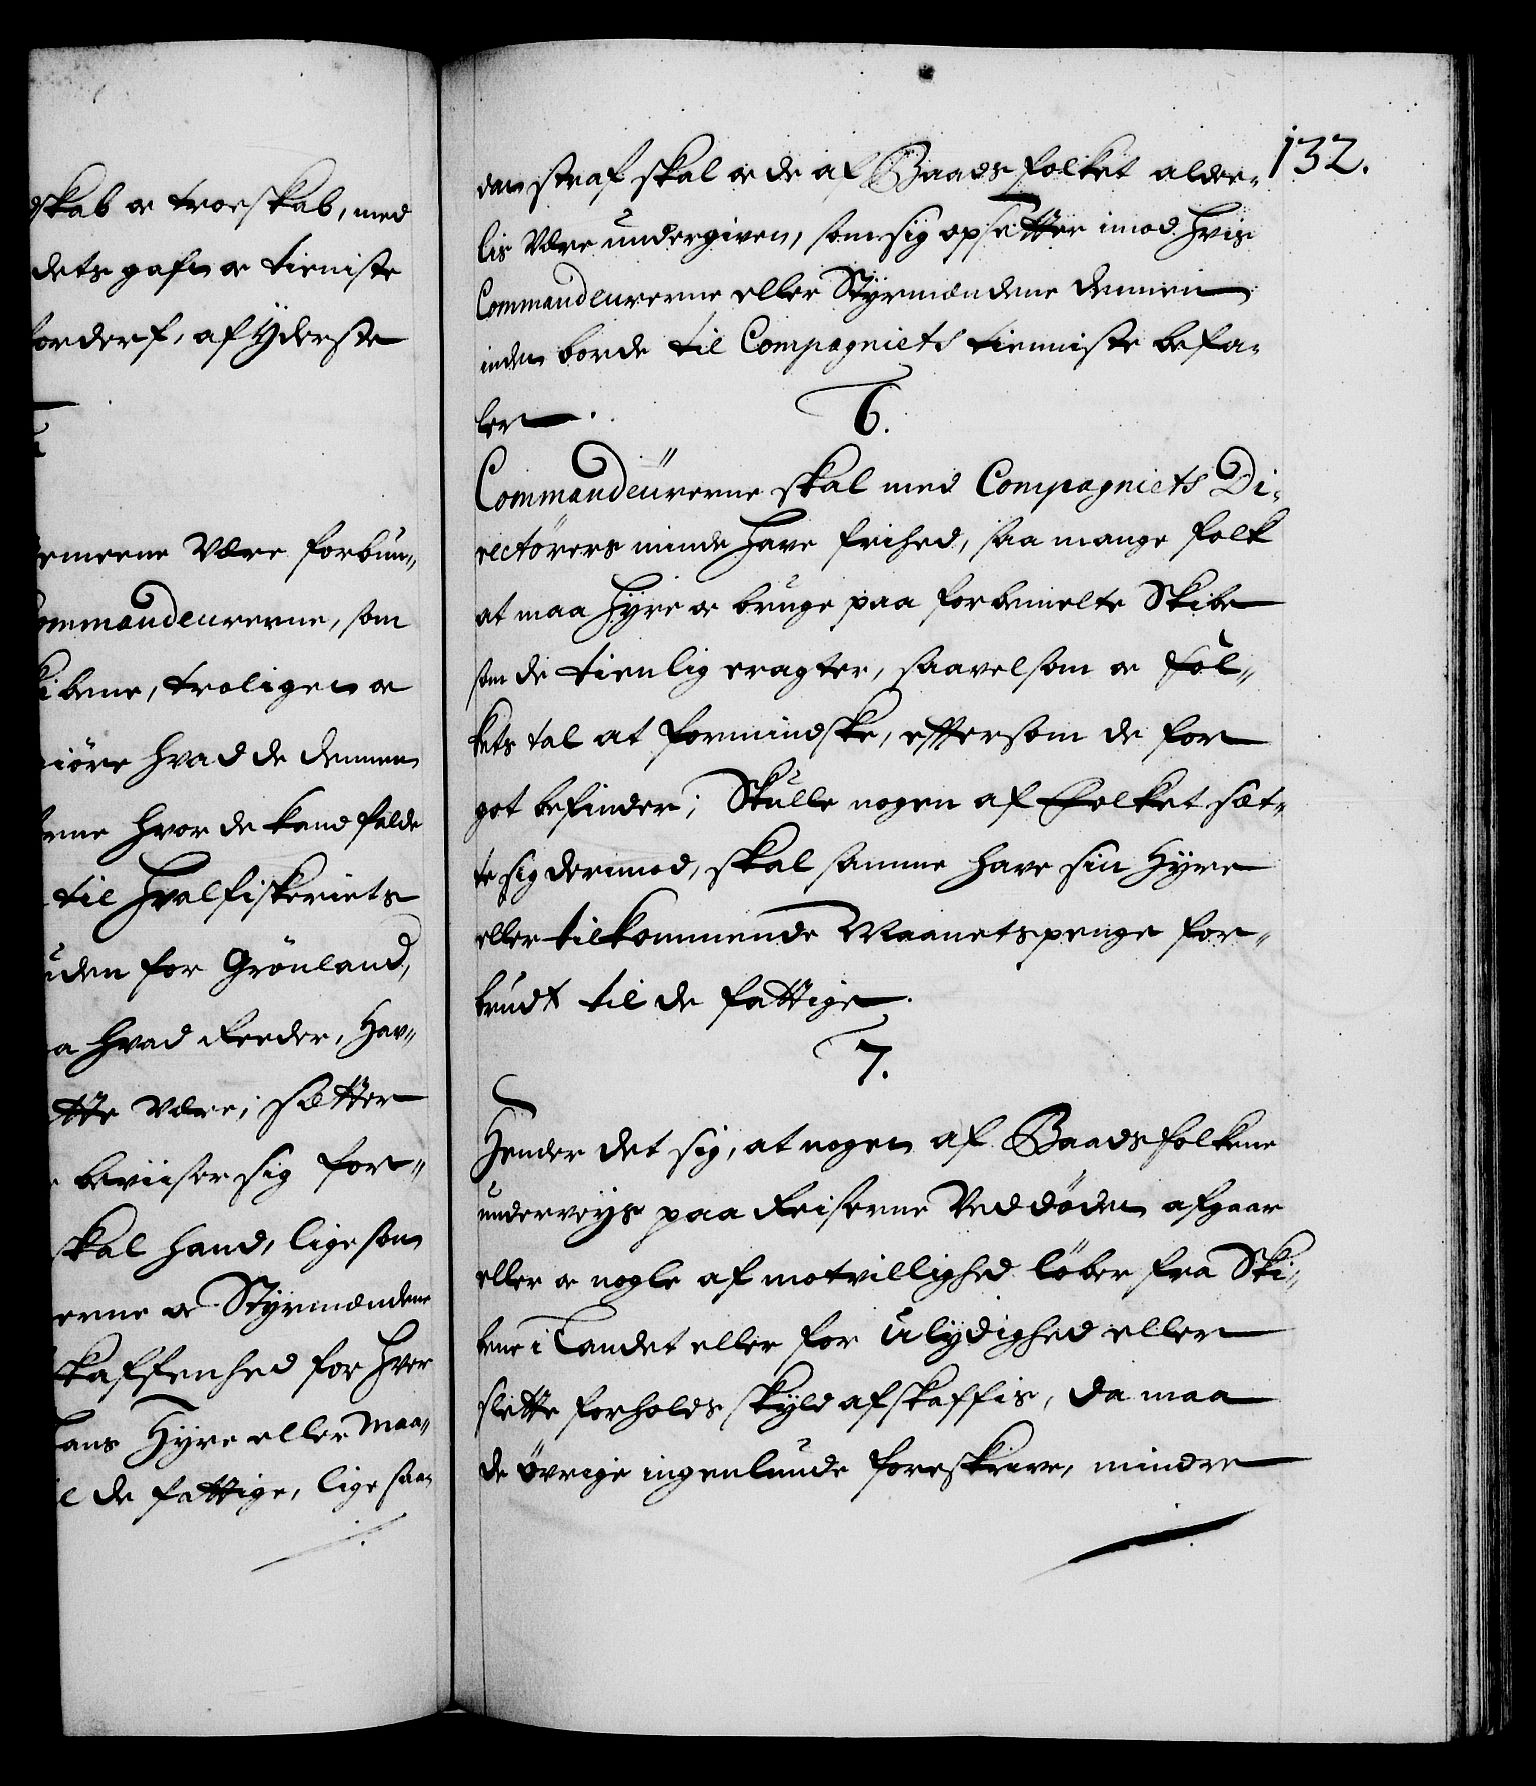 dskab oc troeskab, med
dets gafn oc tieniste
forderf, af yderste
emeene være forbun„
ommandeurerne, som
kibene, troligen oc
giöre hvad de dennem
erne hvor de kand falde
til Hvalfiskeriets
uden for Grönland,
a hvad Reeder, Hav„
tte være; sætter
beviiser sig for„
skal hand, lige som
erne oc Styrmændene
skaffenhed for hver
hans Hyre eller Maa„
l de fattige, lige saa„
132.
dan straf skal oc de af Baadsfolket alde„
lis være undergiven, som sig opsetter imod hvis
Commandeurerne eller Styrmændene dennem
inden borde til Compagniets tienniste befa„
ler.
6.
Commandeürerne skal med Compagniets Di„
rectörers minde have frihed, saa mange folk
at maa hyre oc bruge paa forbemelte Skibe
som de tienlig eragter, saavelsom oc fol„
kets tal at formindske, effersom de for
got befinder; Skulle nogen af Folket sæt„
te sig derimod, skal samme have sin Hyre
eller tilkommende Maanetspenge for„
brudt til de fattige.
7.
Hender det sig, at nogen af Baadsfolkene
underveys paa Reiserne ved döden afgaar
eller oc nogle af motvillighed löber fra Ski„
bene i Landet eller for ulydighed eller
slette forholds skyld afskaffis, da maa
de övrige ingenlunde foreskrive, mindre